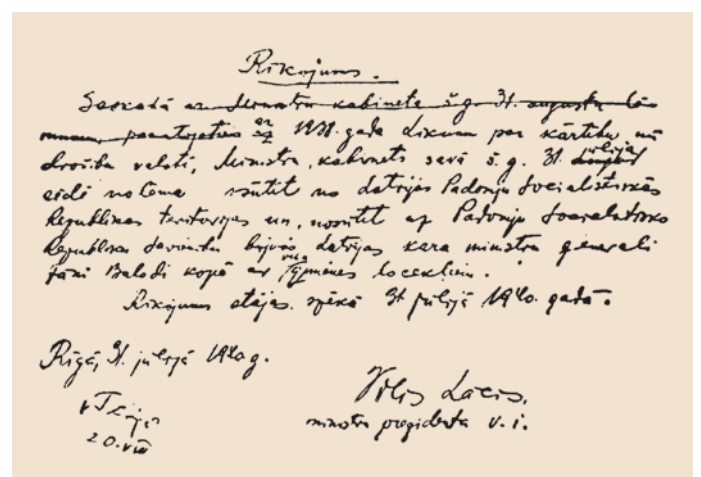 Rīkojums.
Saskaņā ar Ministru kabineta š.g. 31. augusta lē-
mumu, pamatojoties uz ar 1938. gada likumu par kārtību un
drošību valstī, Ministru kabinets savā š.g. 31. jūlija
sēdē nolēma izsūtīt no Latvijas Padomju Sociālistiskās
Republikas teritorijas un nosūtīt uz Padomju Sociālistisko
Republiku Savienību bijušo Latvijas kara ministru ģenerāli
Jāni Balodi kopā ar viņa ģimenes locekļiem.
Rīkojums stājas spēkā 31. jūlijā 1940. gadā.
Rīgā, 31. jūlijā 1940 g.
Vilis Lācis,
ministru prezidenta v. i.
20. VIII